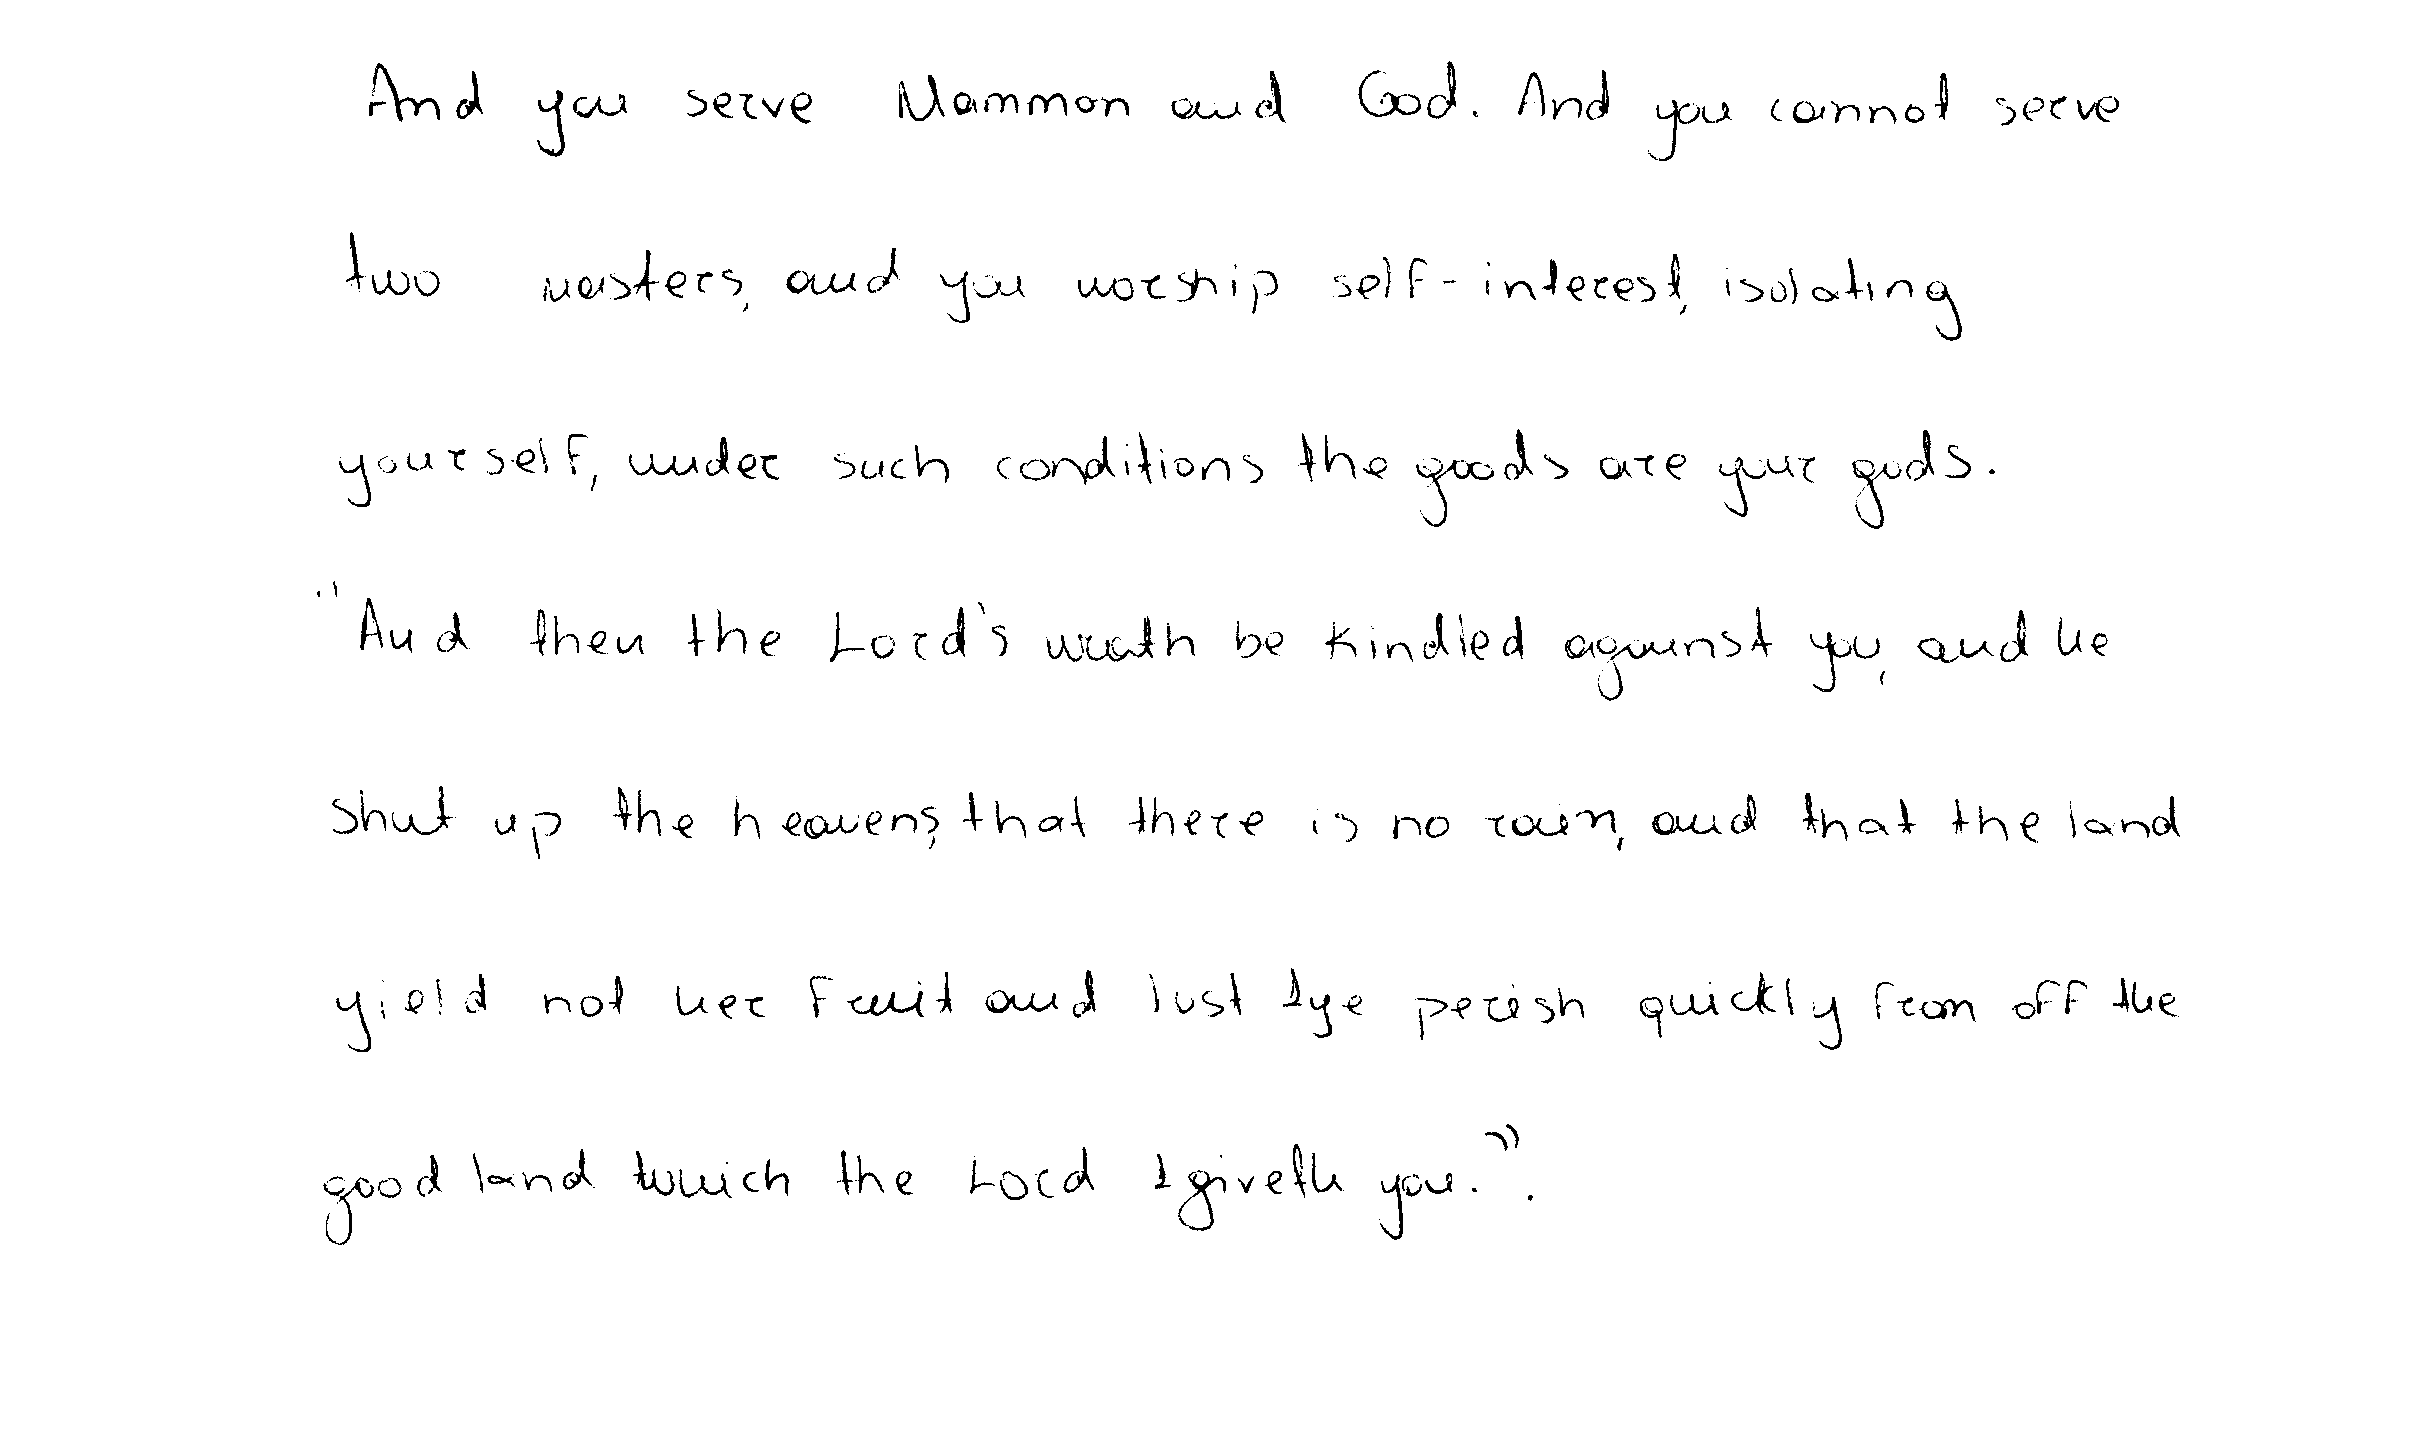 And you serve Mammon and God. And you cannot serve
two masters, and you worship self-interest, isolating
yourself, under such conditions the goods are your gods.
"And then the Lord's wrath be kindled against you, and he
shut up the heavens, that there is no rain, and that the land
yield not her fruit and lust 1ye perish quickly from off the
good land twhich the Lord 1giveth you.".